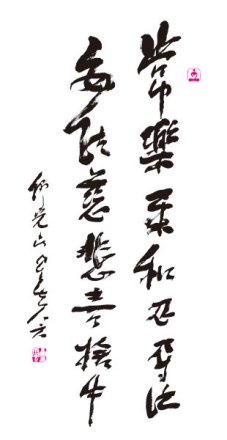 常樂柔和忍辱法
安住慈悲喜捨中
佛光山星雲